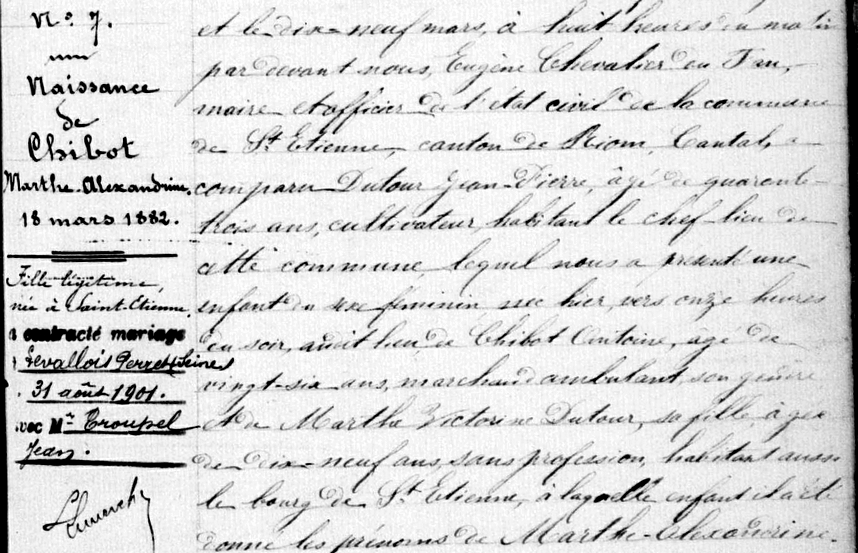 N° 7.
Naissance
de
Chibot
Marthe-Alexandrine.
18 mars 1882.
Fille légitime,
née à Saint-Etienne.
a contracté mariage
à Levallois Perret (Seine)
31 août 1901.
avec Mr Troupel
Jean.
et le dix-neuf mars, à huit heures du matin
par devant nous, Eugène Chevalier du Fau,
maire et officier de l'état civil de la commune
de St Etienne, canton de Riom, Cantal, a
comparu Dutour Jean-Pierre, âgé de quarante-
trois ans, cultivateur, habitant le chef-lieu de
cette commune lequel nous a présenté une
enfant du sexe féminin, née hier, vers onze heures
du soir, audit lieu, de Chibot Antoine, âgé de
vingt-six ans, marchand ambulant, son gendre
et de Marthe Victorine Dutour, sa fille, âgée
de dix-neuf ans, sans profession, habitant aussi
le bourg de St Etienne, à laquelle enfant il a été
donné les prénoms de Marthe-Alexandrine.